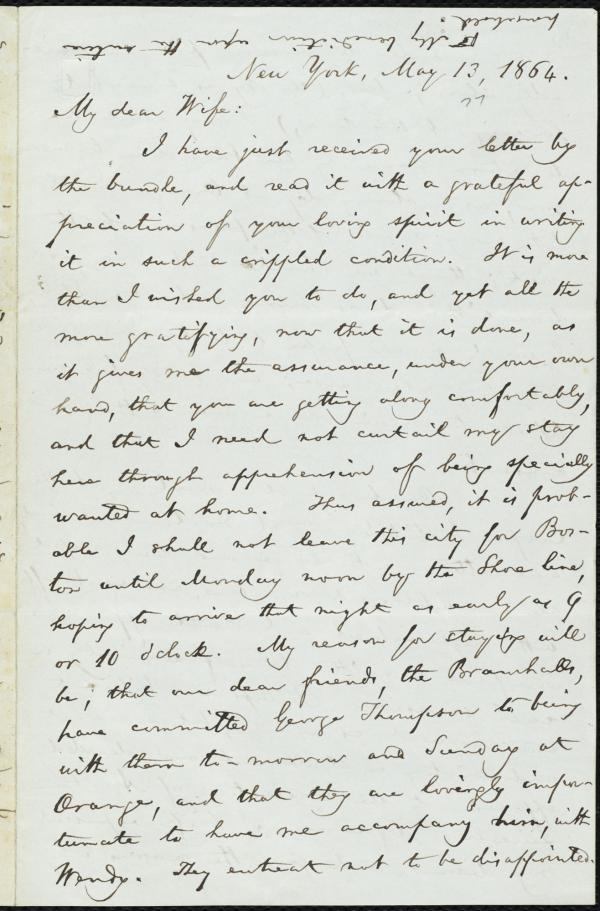 My benediction upon the entire
household.
New York, May 13, 1864.
My dear Wife:
I have just received your letter by
the bundle, and read it with a grateful ap-
preciation of your loving spirit in writing
it in such a crippled condition. It is more
than I wished you to do, and yet all the
more gratifying, now that it is done, as
it gives me the assurance, under your own
hand, that you are getting along comfortably,
and that I need not curtail my stay
here through apprehension of being specially
wanted at home. Thus assured, it is prob-
able I shall not leave this city for Bos-
ton until Monday noon by the Shore line,
hoping to arrive that night as early as 9
or 10 o'clock. My reason for staying will
be, that our dear friends, the Bramhalls,
have committed George Thompson to being
with them to-morrow and Sunday at
Orange, and that they are lovingly impor-
tunate to have me accompany him, with
Wendy. They entreat not to be disappointed.